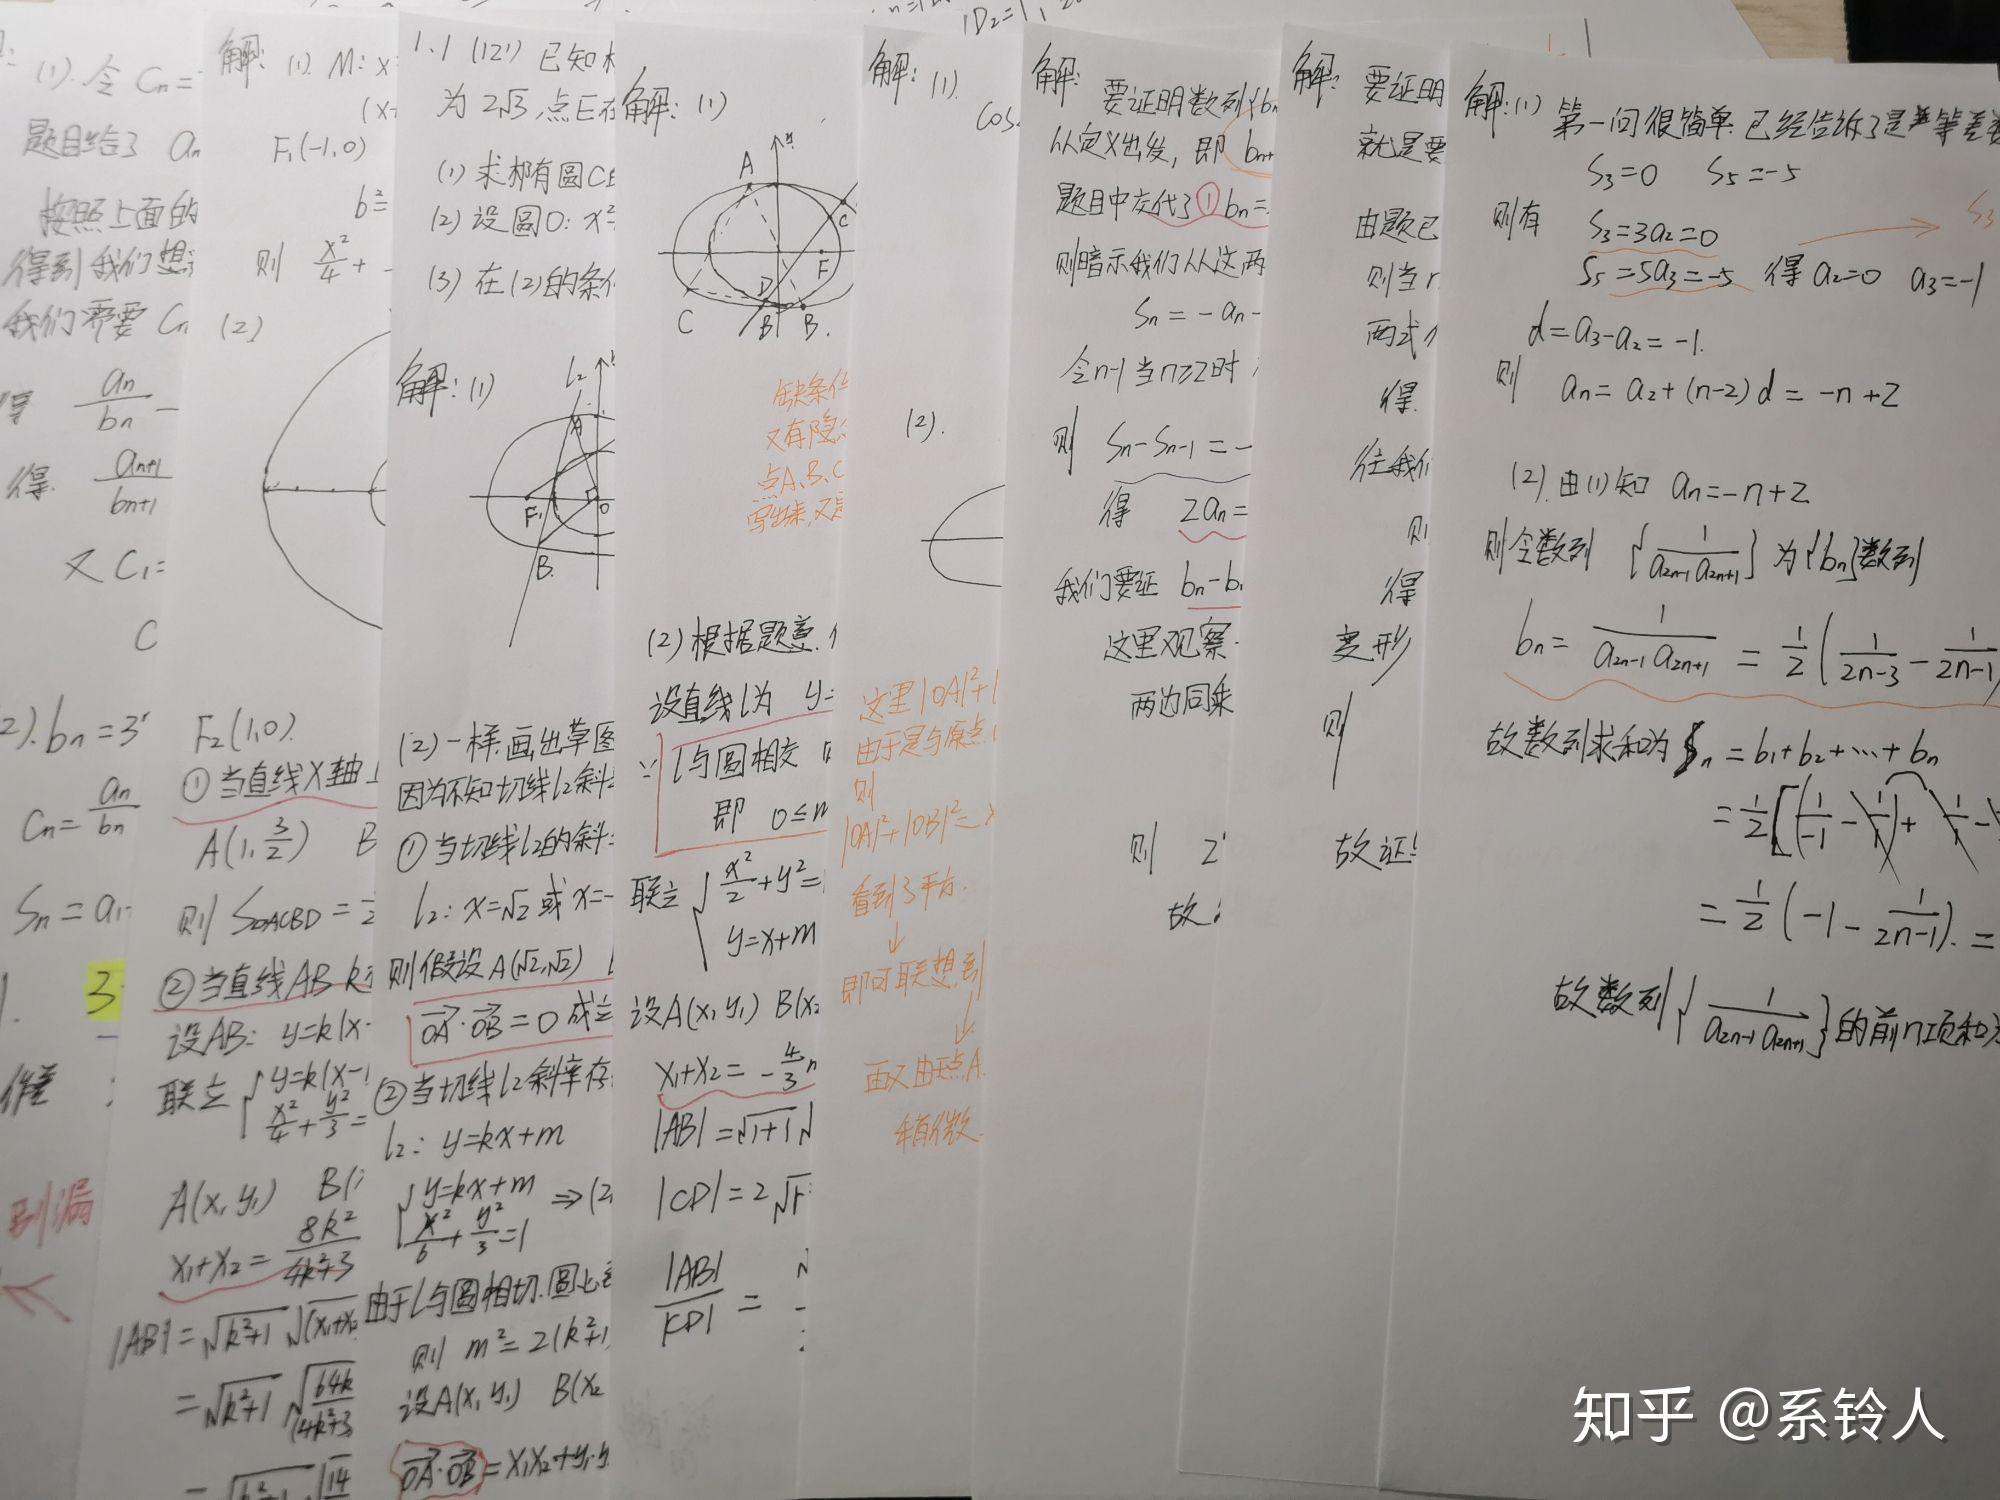 (1). 令 Cn=
题目给了 an
按照上面的
得到我们想
我们需要 Cn
an/bn —
得 an+1/bn+1
又 C1=
C
2). bn=3
Cn= an/bn
Sn=a1
3
解: (1). M: x
F1(-1,0)
b²=
则 x²/4 +
(2)
F2(1,0).
①当直线X轴
A(1, 3/2) B
则 SOACBD=
②当直线AB k
设AB: y=k(x-
联立 { y=k(x-1
x²/4+y²/3=
A(x, y1) B(
x1+x2= 8k²/4k²+3
|AB|=√k²+1 √(x1+x2
=√k²+1 √64k/(4k²+3
1.1 (12') 已知
为 2√3, 点E在
(1) 求椭圆C
(2) 设圆O: x²
(3) 在(2)的条件
解: (1)
l2
A
F1
O
B.
(2)一样, 画出草图
因为不知切线l2斜
①当切线l2的斜
l2: x=√2 或 x=-
则假设A(√2,√2)
OA·OB=0 成立
②当切线l2斜率存
l2: y=kx+m
{ y=kx+m ⇒(2
x²/6+y²/3=1
由于l与圆相切, 圆心
则 m²=2(k²+1
设A(x, y1) B(x2
OA·OB=x1x2+y1·y
解: (1)
A
y
C
F
D
C
B
B.
缺条件
又有隐
点A、B、C
写出来, 又是
(2)根据题意,
设直线l为 y=
∵ l与圆相交
即 0≤m
联立 { x²/2+y²=
y=x+m
设A(x, y1) B(x2
x1+x2=-4/3 m
|AB|=√1+1 √
|CD|=2√
|AB|/|CD| =
解: (1).
cos
(2).
这里|OA|²+|
由于是与原点
则
|OA|²+|OB|²=
看到了平方.
↓
即可联想到
↓
而又由于点A.
稍微
解: 要证明数列{bn
从定义出发, 即 bn+
题目中交代了① bn=
则暗示我们从这两
Sn=-an-
令n-1 当n≥2时
则 Sn-Sn-1=-
得 2an=
我们要证 bn-b
这里观察
两边同乘
则 2
故
解: 要证明
就是要
由题已
则当n
两式
得
往我们
则
得
变形
则
故证
解:(1) 第一问很简单, 已经告诉了是等差数
S3=0 S5=-5
则有 S3=3a2=0
S3
S5=5a3=-5 得 a2=0 a3=-1
d=a3-a2=-1.
则 an=a2+(n-2)d=-n+2
(2). 由(1)知 an=-n+2
则令数列 {1/a2n-1 a2n+1} 为{bn}数列
bn= 1/a2n-1 a2n+1 = 1/2(1/2n-3 - 1/2n-1)
故数列求和为 Sn=b1+b2+…+bn
=1/2[(1/-1 - 1/1)+
=1/2(-1-1/2n-1). =
故数列{1/a2n-1 a2n+1}的前n项和为
知乎 @系铃人